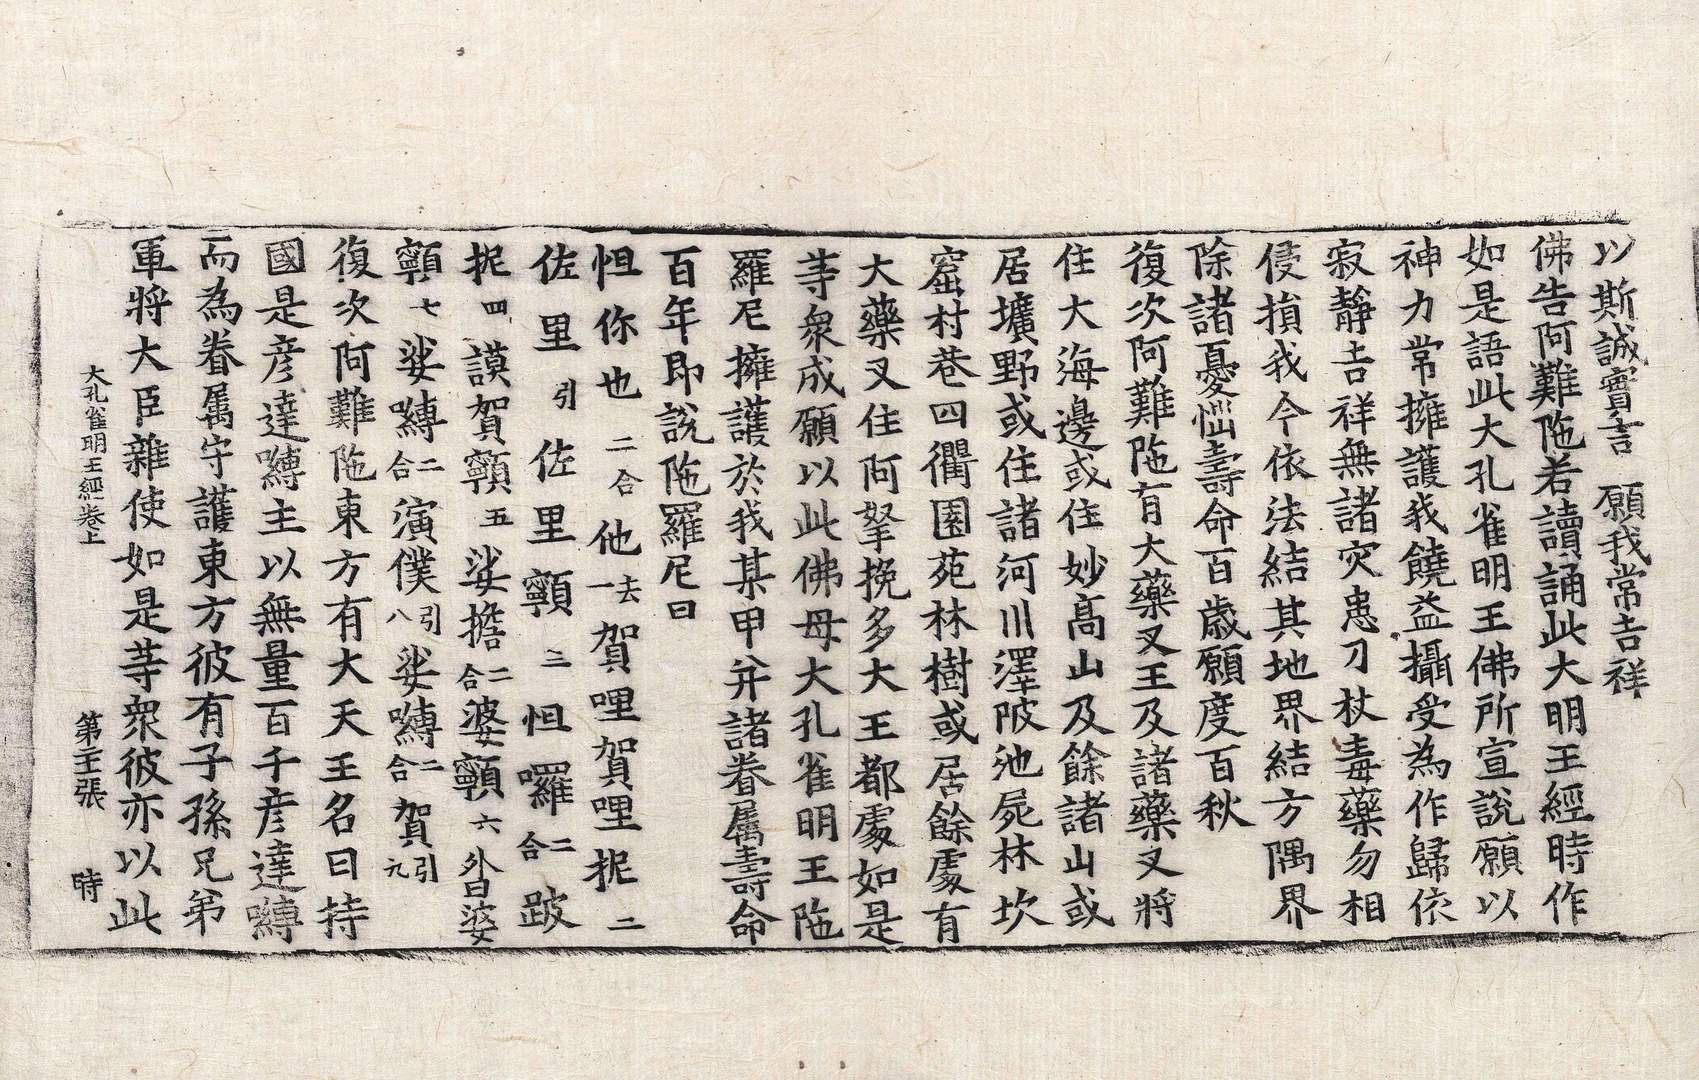 以斯誠實言　願我常吉祥
佛告阿難陁若讀誦此大明王經時作
如是語此大孔雀明王佛所宣說願以
神力常擁護我饒益攝受為作歸依
寂靜吉祥無諸灾患刀杖毒藥勿相
侵損我今依法結其地界結方隅界
除諸憂惱壽命百歲願度百秋
復次阿難陁有大藥叉王及諸藥叉將
住大海邊或住妙高山及餘諸山或
居壙野或住諸河川澤陂池屍林坎
窟村巷四衢園苑林樹或居餘處有
大藥叉住阿拏挽多大王都處如是
等衆咸願以此佛母大孔雀明王陁
羅尼擁護於我某甲并諸眷属壽命
百年即說陁羅尼曰
怛你也二合他去一賀哩賀哩抳二
佐里引佐里𩕳三怛囉二合跛
抳四謨賀𩕳五娑擔二合婆𩕳六昝婆
𩕳七娑嚩二合演僕引八娑嚩二合賀引九
復次阿難陁東方有大天王名曰持
國是彦達嚩主以無量百千彦達嚩
而為眷属守護東方彼有子孫兄弟
軍將大臣雜使如是等衆彼亦以此
大孔雀明王經卷上　第十三張　時